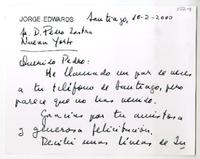 JORGE EDWARDS
Santiago, 10-2-2000
A D. Pedro Lastra
Nueva York
Querido Pedro:
He llamado un par de veces
a tu teléfono de Santiago, pero
parece que no has venido.
Gracias por tu amistosa
y generosa felicitación.
Recibí unas líneas de